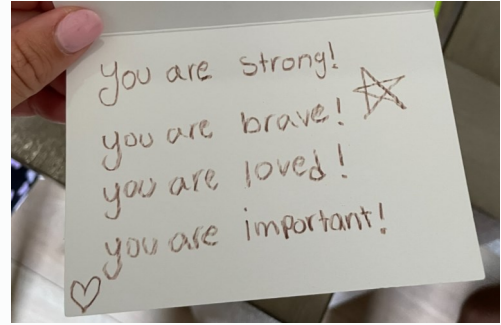 you are strong!
you are brave!
you are loved!
you are important!